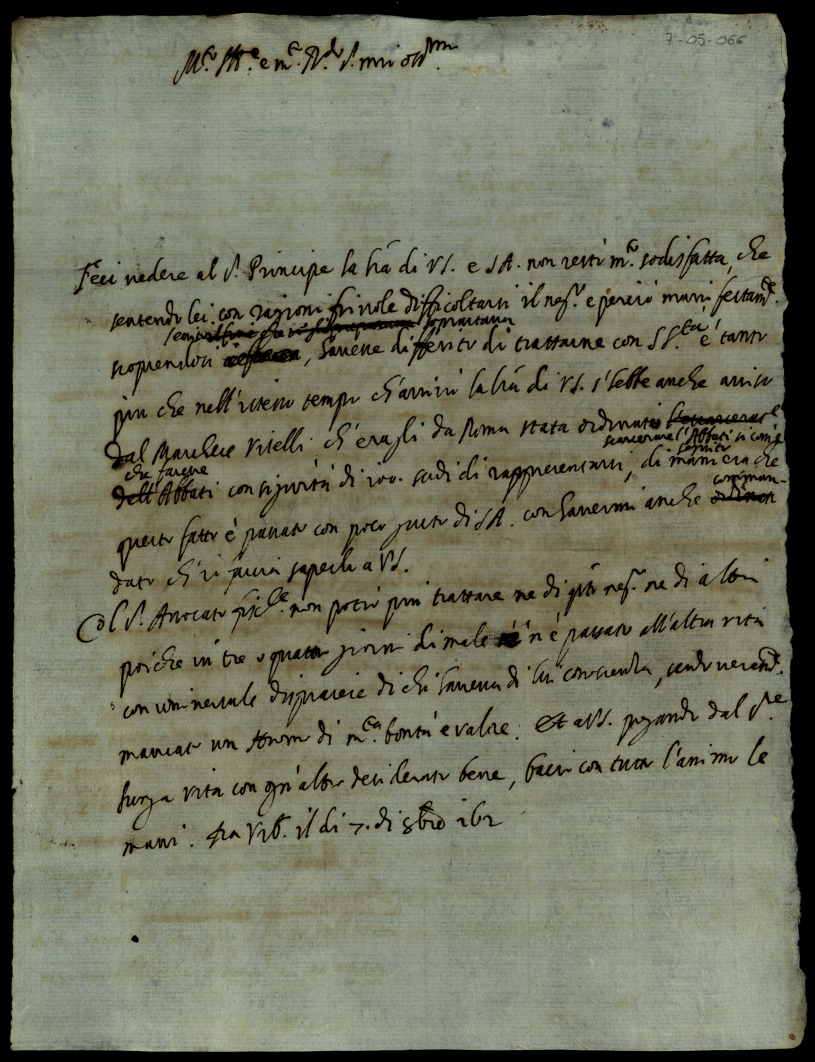 7-05-066
M.to Ill.re e m.to R.do S.r mio oss.mo
Feci vedere al S.r Principe la lr̃a di VS. e S.A. non restò m.to sodisfatta, che
sentendo lei con ragioni frivole difficoltarsi il neg.o e perciò
scoprendosi, havene differito di trattarne con S.S.tà è tanto
più che nell'istesso tempo ch'arrivò la lr̃a di VS. s'hebbe anche aviso
dal Marchese Vitelli ch'eragli da Roma stata ordinato
scarcerare l'Abbati si com'è seguito
che farne
dell'Abbati con sigurtà di 100. scudi di rappresentarsi, di maniera che
questo fatto è passato con poco gusto di S.A. con havermi anche comman-
dato ch'io facci saperlo a VS.
Col S.r Avocato fisc.le non potrò più trattare ne di q̃sto neg.o ne di altri
poiche in tre o quattro giorni di male se n'è passato all'altra vita
con universale dispiacere di chi haveva di lui conoscenza, sendo veram.te
mancato un homo di m.ta bontà e valore. Et a VS. pregando dal S.re
lunga vita con ogn'altro desiderato bene, bacio con tutto l'animo le
mani. Da Urb.o il dì 7. di 8bre 162